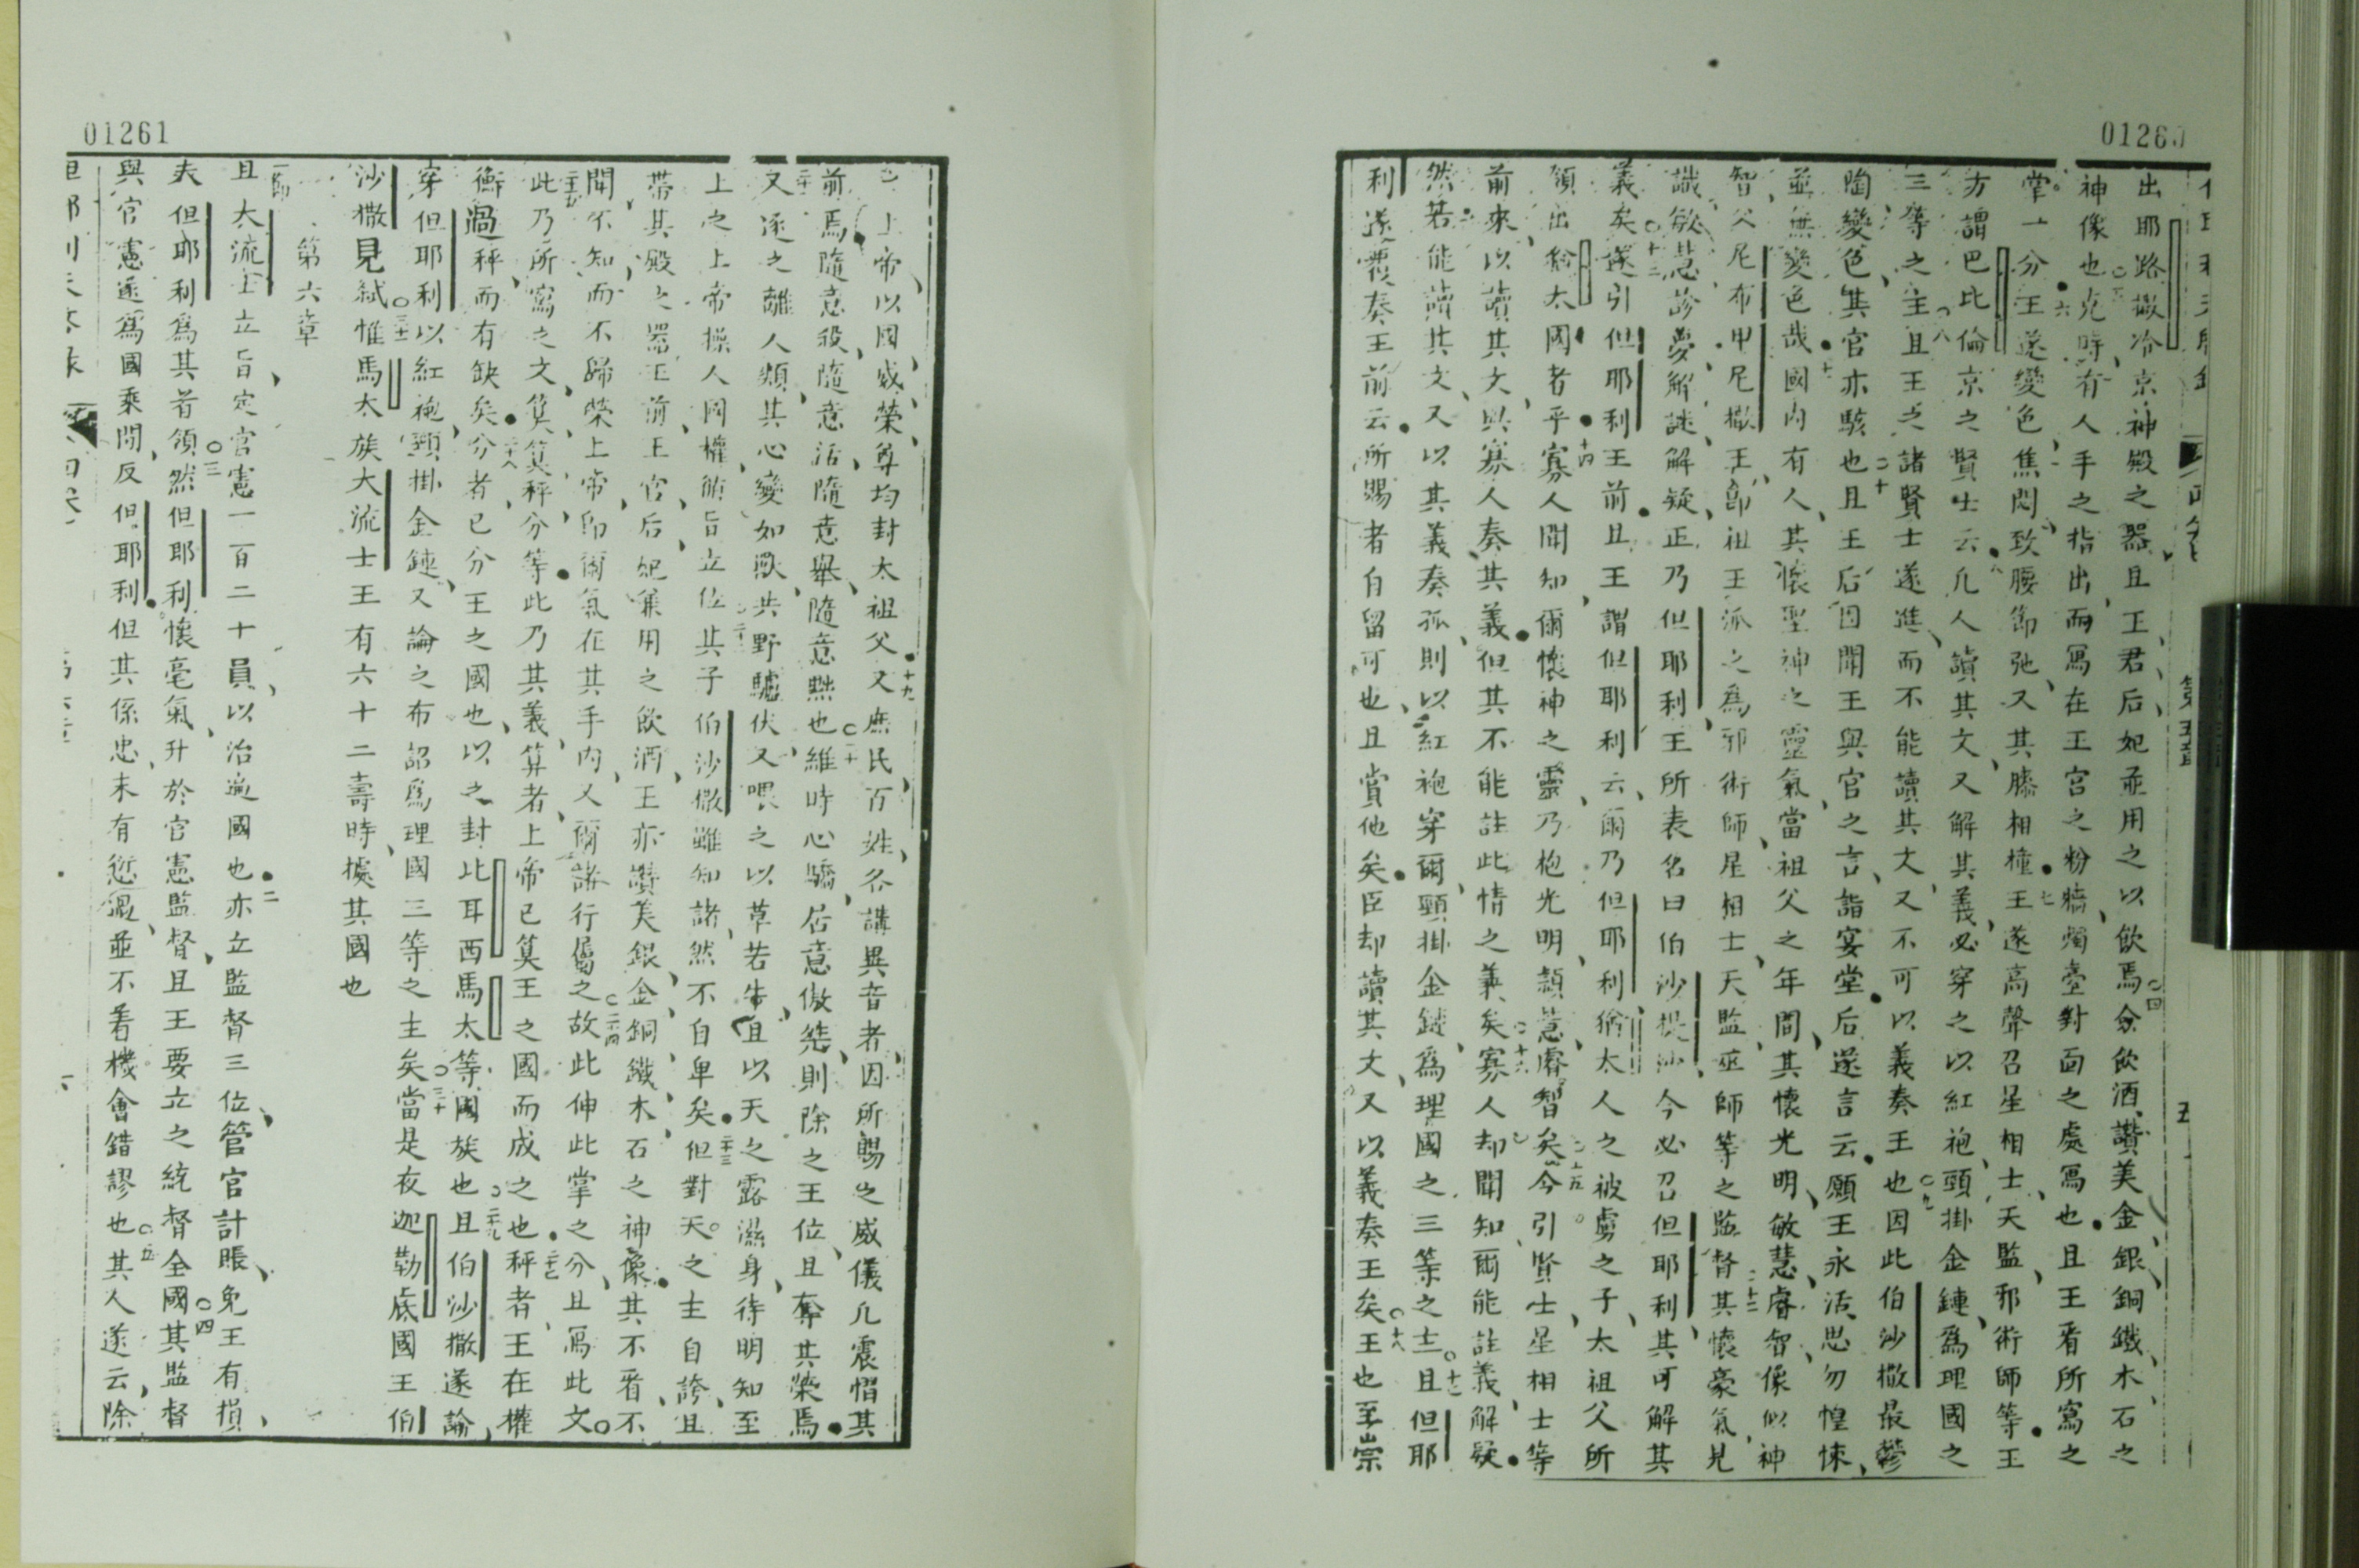 01260
第五章
五
出耶路撒冷京神殿之器且王君后妃並用之以飲焉四僉飲酒讚美金銀銅鐵木石之
神像也五克時有人手之指出而寫在王宮之粉牆燭臺對面之處寫也且王看所寫之
掌一分六王遂變色焦悶致腰節弛又其膝相撞七王遂高聲召星相士天監邪術師等王
方謂巴比倫京之賢士云凡人讀其文又解其義必穿之以紅袍頸掛金鏈爲理國之
三等之主八且王之諸賢士遂進而不能讀其文又不可以義奏王也九因此伯沙撒最鬱
陶變色其官亦駭也十且王后因聞王與官之言詣宴堂后遂言云願王永活思勿惶悚
並無變色哉十一國內有人其懷聖神之靈氣當祖父之年間其懷光明敏慧睿智像似神
智父尼布甲尼撒王卽祖王派之爲邪術師星相士天監巫師等之監督十二其懷豪氣見
識敏慧診夢解謎解疑正乃但耶利王所表名曰伯沙提沙今必召但耶利其可解其
義矣十三遂引但耶利王前且王謂但耶利云爾乃但耶利猶太人之被虜之子太祖父所
領出猶太國者乎十四寡人聞知爾懷神之靈乃抱光明穎慧睿智矣十五今引賢士星相士等
前來以讀其文與寡人奏其義但其不能註此情之義矣十六寡人却聞知爾能註義解疑
然若能讀其文又以其義奏孤則以紅袍穿爾頸掛金鏈爲理國之三等之主十七且但耶
利遂覆奏王前云所賜者自留可也且賞他矣臣却讀其文又以義奏王矣十八王也至崇
01261
上帝以國威榮尊均封太祖父十九又庶民百姓各講異音者因所賜之威儀凡震慴其
前焉隨意殺隨意活隨意舉隨意黜也二十維時心驕居意傲然則除之王位且奪其榮焉
又逐之離人類其心變如獸共野驢伏又喂之以草若牛且以天之露濕身待明知至
上之上帝操人國權飭旨立位二十二其子伯沙撒雖知諸然不自卑矣二十三但對天之主自誇且
帶其殿之器王前王官后妃兼用之飲酒王亦讚美銀金銅鐵木石之神像其不看不
聞不知而不歸榮上帝卽爾氣在其手內又爾諸行屬之二十四故此伸此掌之分且寫此文
此乃所寫之文算算秤分等此乃其義算者上帝已算王之國而成之也二十七秤者王在權
衡過秤而有缺矣二十八分者已分王之國也以之封比耳西馬太等國族也二十九且伯沙撒遂論
穿但耶利以紅袍頸掛金鏈又論之布詔爲理國三等之主矣三十當是夜迦勒底國王伯
沙撒見弒三十一惟馬太族大流士王有六十二壽時據其國也
第六章
一節
且大流士立旨定官憲一百二十員以治遍國也二亦立監督三位管官計賬免王有損
夫但耶利爲其首領三然但耶利懷毫氣升於官憲監督且王要立之統督全國四其監督
與官憲遂爲國乘間反但耶利但其係忠未有愆愿並不看機會錯謬也五其人遂云除